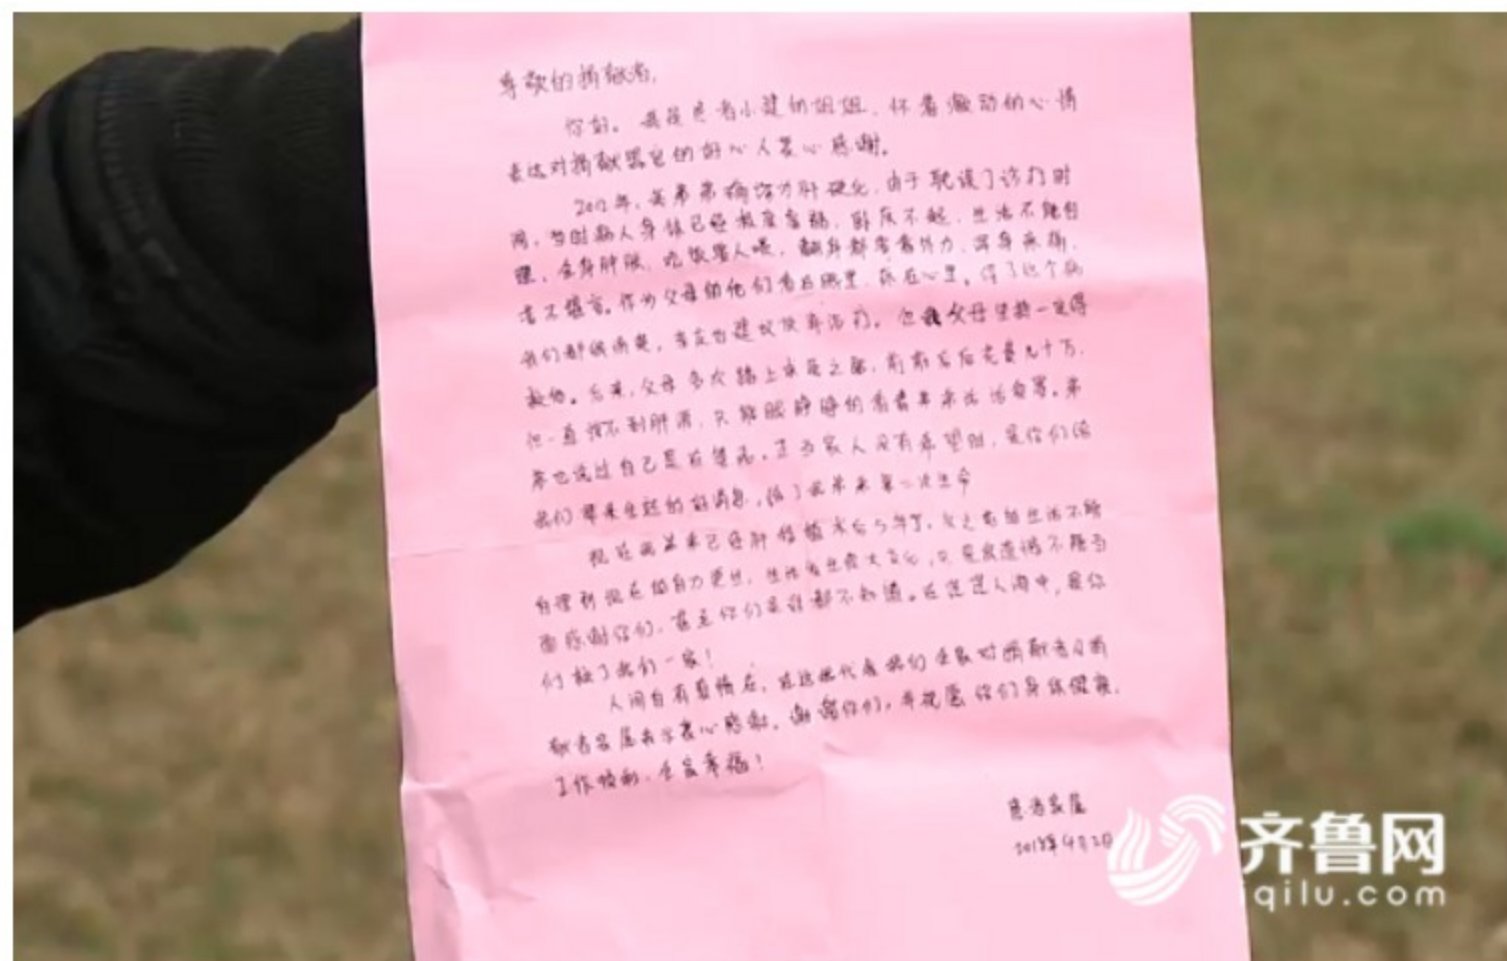 尊敬的捐献者,
你好。我是患者小建的姐姐,怀着激动的心情
表达对捐献器官的好心人衷心感谢。
2012年,我弟弟确诊为肝硬化,由于耽误了诊疗时
间,当时病人身体已经极度虚弱,卧床不起,生活不能自
理,全身肿胀,吃饭需人喂,翻身都需靠外力,浑身疼痛,
苦不堪言。作为父母的他们看在眼里,疼在心里。得了这个病
我们都很清楚,专家也建议放弃治疗。但我父母坚持一定得
救他。后来,父母多次踏上求医之路,前前后后花费几十万,
但一直找不到肝源,只能眼睁睁的看着弟弟活活自等。弟
弟也说过自己是在等死。正当家人没有希望时,是你们给
我们带来生还的好消息,给了我弟弟第二次生命
现在我弟弟已经肝移植术后5年了,从之前的生活不能
自理到现在的自力更生,生活发生很大变化,只是很遗憾不能当
面感谢你们,甚至你们是谁都不知道。在茫茫人海中,是你
们救了我们一家!
人间自有真情在,在这我代表我们全家对捐献者及捐
献者家属表示衷心感谢,谢谢你们,并祝愿你们身体健康,
工作顺利,全家幸福!
患者家属
2018年4月2日
齐鲁网
iqilu.com